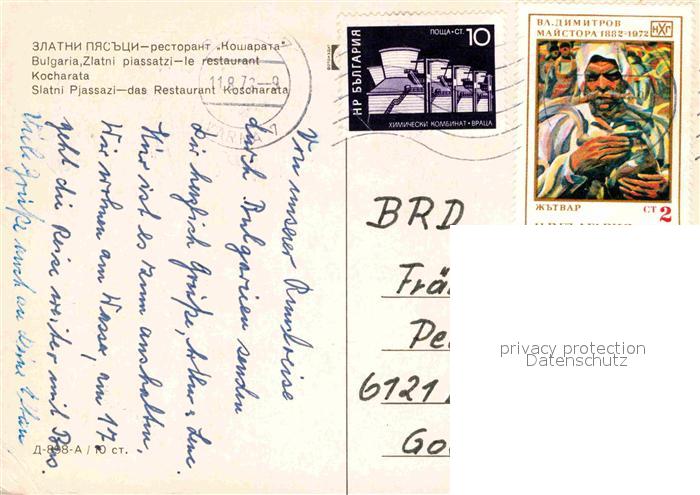 ЗЛАТНИ ПЯСЪЦИ—ресторант „Кошарата"
Bulgaria, Zlatni piassatzi—le restaurant
Kocharata
Slatni Pjassazi—das Restaurant Koscharata
11.8.72-9
Von unserer Rundreise
durch Bulgarien senden
Dir herzlich Grüße,
Hier ist es kaum auszuhalten,
Wir wohnen am Wasser, am 17.
geht die Reise weiter mit Bus.
Viele Grüße auch an Deine Eltern
Д-898-А / 10 ст.
НР БЪЛГАРИЯ
ПОЩА·СТ. 10
ХИМИЧЕСКИ КОМБИНАТ·ВРАЦА
ВЛ.ДИМИТРОВ
МАЙСТОРА 1882-1972
НХГ
ЖЪТВАР
СТ 2
BRD
Frä
Pe
6121
Go
privacy protection
Datenschutz